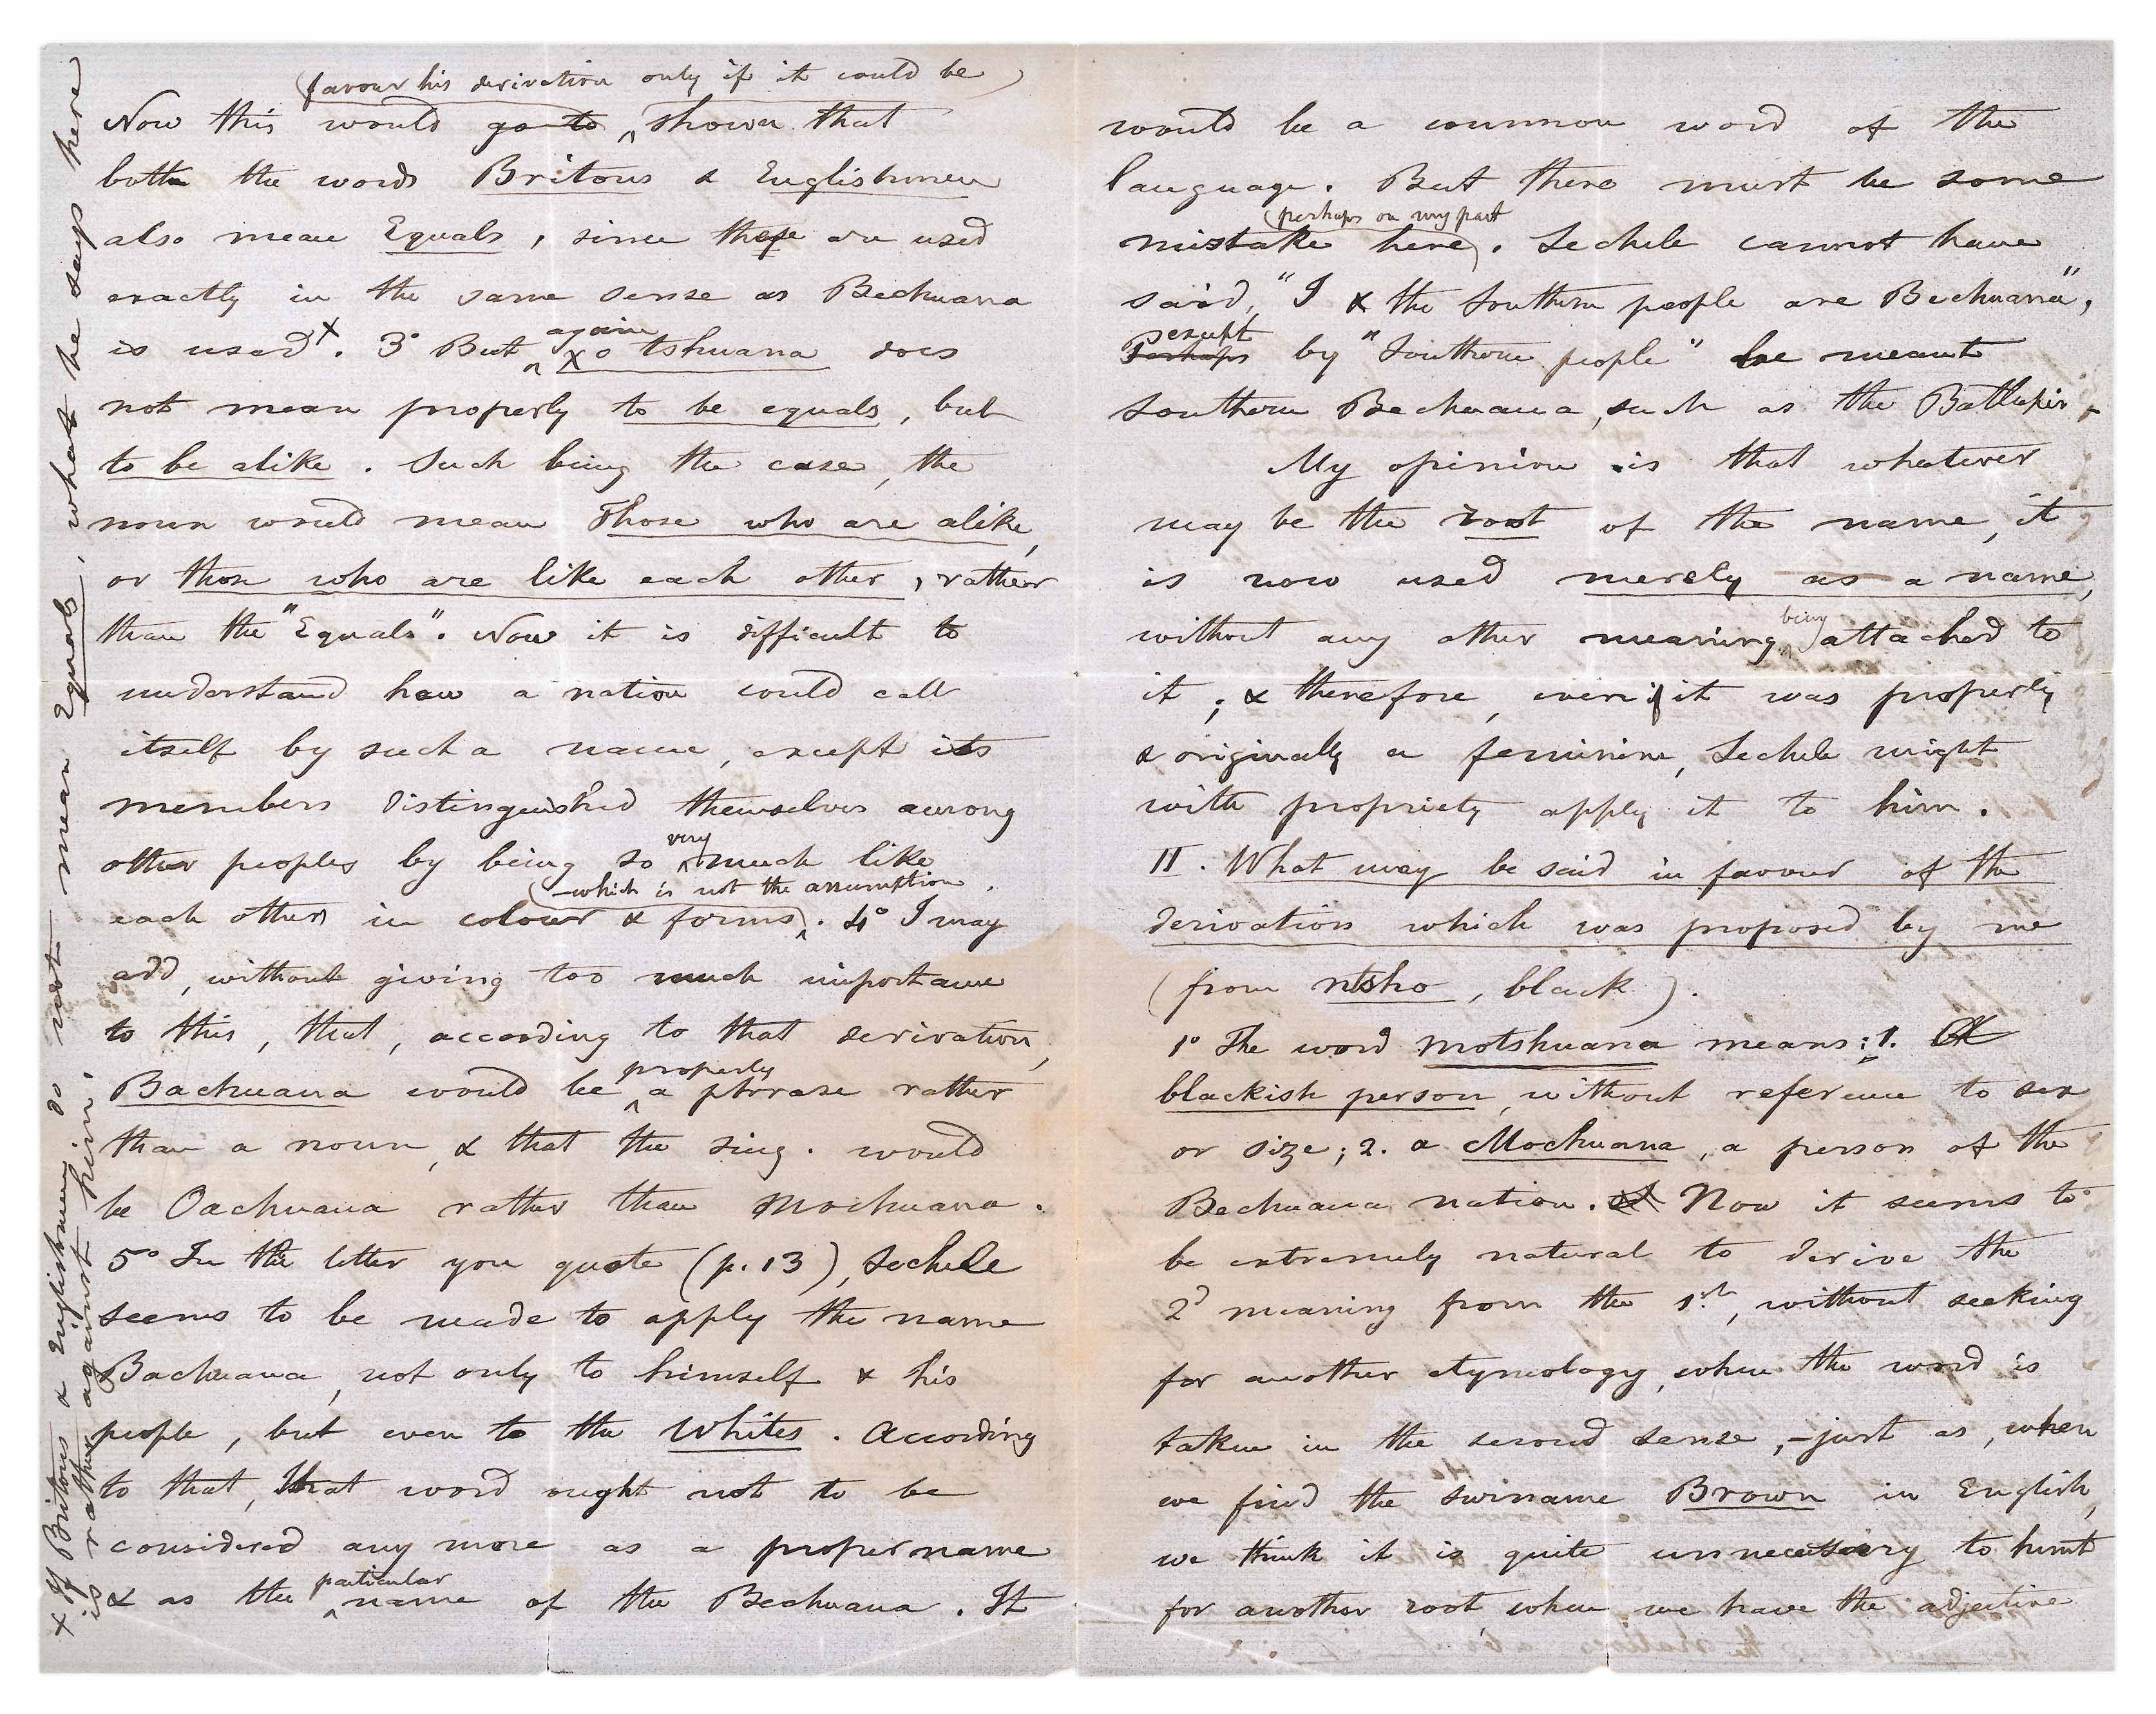 favour his derivation only if it could be
Now this would go to shown that
both the words Britons & Englishmen
also mean Equals, since these are used
exactly in the same sense as Bechuana
is used x. 3° But again χo tshuana does
not mean properly to be equals, but
to be alike. Such being the case, the
noun would mean Those who are alike,
or those who are like each other, rather
than the "Equals". Now it is difficult to
understand how a nation could call
itself by such a name, except its
members distinguished themselves among
other peoples by being so very much like
which is not the assumption.
each other in colour & forms. 4° I may
add, without giving too much importance
to this, that, according to that derivation,
Bachuana would be properly a phrase rather
than a noun, & that the sing. would
be Oachuana rather than Mochuana.
5° In the letter you quote (p. 13), Sechele
seems to be made to apply the name
Bachuana, not only to himself & his
people, but even to the Whites. According
to that, that word ought not to be
considered any more as a proper name
& as the particular name of the Bechuana. It
x If Britons & Englishmen do not mean Equals, what he says here
is rather against him.
would be a common word of the
language. But there must be some
(perhaps on my part
mistake here). Sechele cannot have
said, "I & the Southern people are Bechuana",
Perhaps except by "Southern people" he meant
southern Bechuana, such as the Batlapin.
My opinion is that whatever
may be the root of the name, it
is now used merely as a name,
without any other meaning being attached to
it; & therefore, even if it was properly
& originally a feminine, Sechele might
with propriety apply it to him.
II. What may be said in favour of the
derivation which was proposed by me
(from ntsho, black).
1° The word motshuana means: 1. A
blackish person, without reference to sex
or size; 2. a Mochuana, a person of the
Bechuana nation. Now it seems to
be extremely natural to derive the
2d meaning from the 1st, without seeking
for another etymology, when the word is
taken in the second sense, - just as, when
we find the surname Brown in English,
we think it is quite unnecessary to hunt
for another root, when we have the adjective